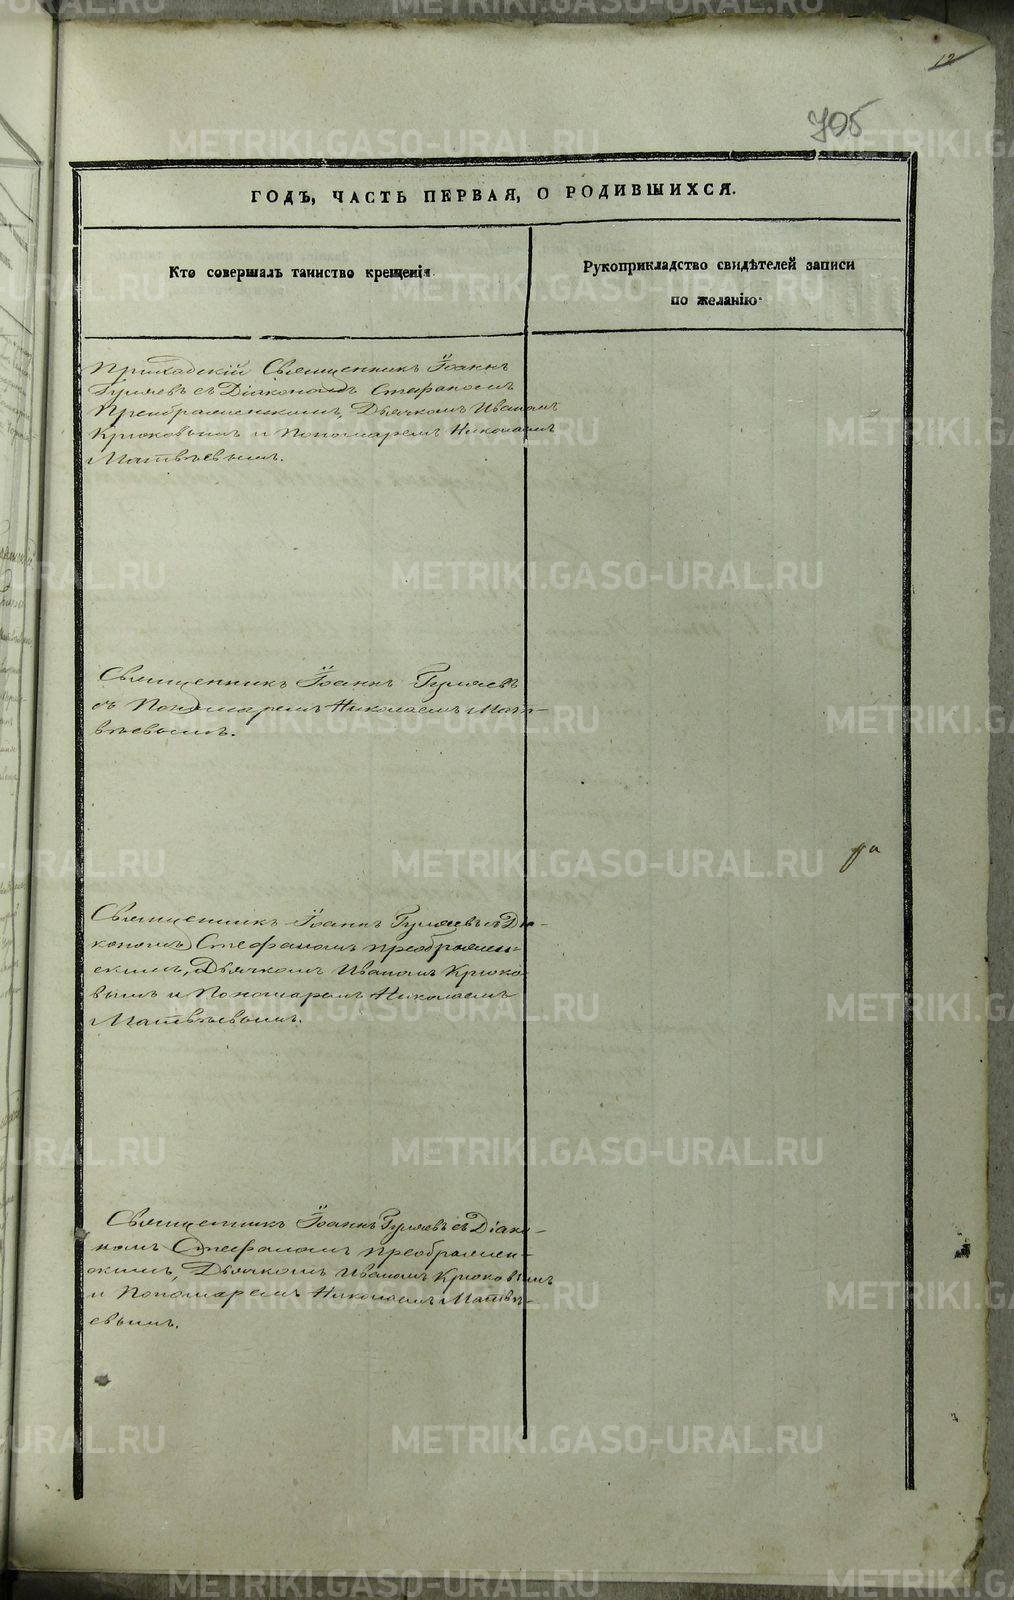 12
705
ГОДЪ, ЧАСТЬ ПЕРВАЯ, О РОДИВШИХСЯ.
Кто совершалъ таинство крещенія.
Рукоприкладство свидѣтелей записи
по желанію.
Приходскій Священникъ Іоаннъ
Гуляевъ съ Діакономъ Стефаномъ
Преображенскимъ, Дьячкомъ Иваномъ
Крюковымъ и Пономаремъ Николаемъ
Матвѣевымъ.
Священникъ Іоаннъ Гуляевъ
съ Пономаремъ Николаемъ Мат-
вѣевымъ.
Священникъ Іоаннъ Гуляевъ съ Діа-
кономъ Стефаномъ Преображен-
скимъ, Дьячкомъ Иваномъ Крюко
вымъ и Пономаремъ Николаемъ
Матвѣевымъ.
Священникъ Іоаннъ Гуляевъ съ Діако-
номъ Стефаномъ Преображен-
скимъ, Дьячкомъ Иваномъ Крюковымъ
и Пономаремъ Николаемъ Матвѣ-
евымъ.
METRIKI.GASO-URAL.RU